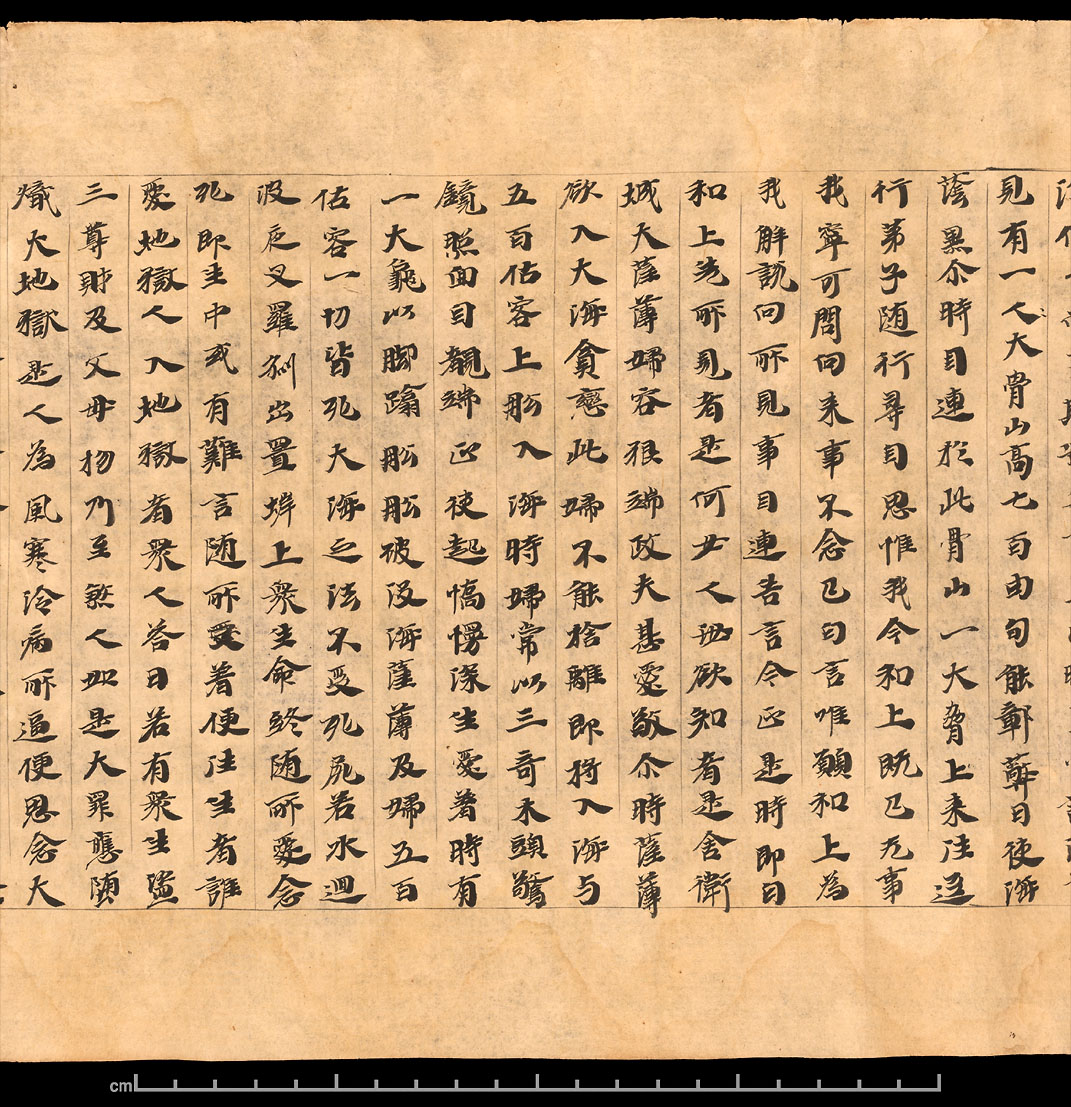 見有一人大骨山高七百由旬能鄣蔽日使海
蔭黑尒時目連於此骨山一大脅上来往逕
行弟子随行尋自思惟我今和上既已无事
我寧可問向来事不念已白言唯願和上為
我解說向所見事目連告言今正是時即曰
和上先所見者是何女人汝欲知者是舍衛
城大薩薄婦容狠端政夫甚愛敬尒時薩薄
欲入大海貪戀此婦不能捨離即将入海与
五百估客上舩入海時婦常以三奇木頭擎
鏡照面自覩端正使起憍慢深生愛著時有
一大龜以脚蹹舩舩破没海薩薄及婦五百
估客一切皆死大海之法不受死屍若水迴
波夜叉羅刹出置岸上衆生命終随所愛念
死即生中或有難言随所愛著便往生者誰
愛地獄人入地獄者衆人答曰若有衆生盗
三尊財及父母物乃至煞人如是大罪應堕
熾大地獄是人為風寒冷病所逼便思念大